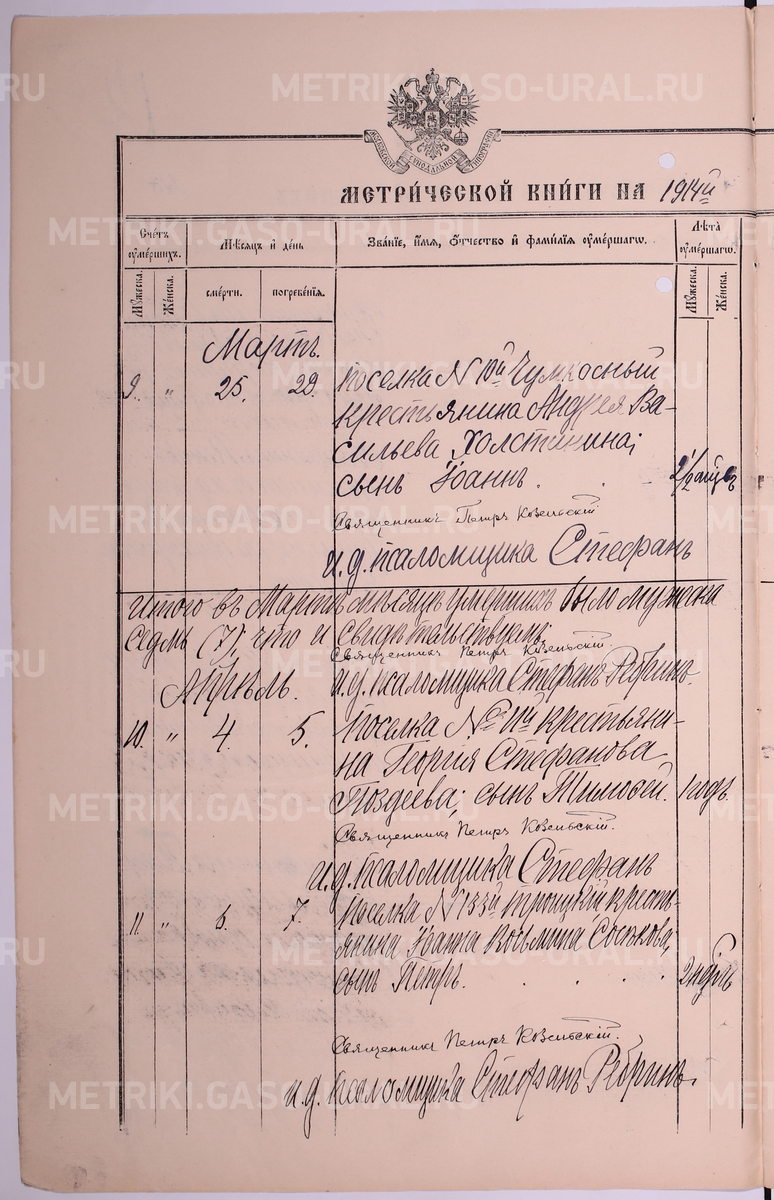 METRIKI.GASO-URAL.RU
МОСКОВСКОЙ СѴНОДАЛЬНОЙ ТИПОГРАФІИ
МЕТРИ́ЧЕСКОЙ КНИ́ГИ НА 1914й
Сче́тъ ᲂу҆ме́ршихъ.
Мѣ́сѧцъ и҆ де́нь
Зва́нїе, и҆́мѧ, ѻ҆́тчество и҆ фами́лїѧ ᲂу҆ме́ршагѡ.
Лѣ́та ᲂу҆ме́ршагѡ.
Мꙋ́жеска.
Же́нска.
сме́рти.
погребе́нїѧ.
Мꙋ́жеска.
Же́нска.
Мартъ.
9. " 25. 29. Поселка N 10й
крестьянина Андрея Ва-
сильева Холстинина;
сынъ Іоаннъ. 2 1/2
Священникъ Петръ Козельскій
и. д. псаломщика Стефанъ
Итого въ Мартѣ мѣсяцѣ умершихъ было мужеска
седмь (7), что и свидѣтельствуемъ:
Священникъ Петръ Козельскій.
Апрѣль. и. д. псаломщика Стефанъ Ребринъ.
10. " 4. 5. Поселка № 11й крестьяни-
на Георгія Стефанова
Поздеева; сынъ Тимоѳей. 1 годъ.
Священникъ Петръ Козельскій.
и. д. псаломщика Стефанъ
11. " 6. 7. Поселка N 133й Троицкій кресть-
янина Іоанна Козьмина
сынъ Петръ. 2 ндѣль
Священникъ Петръ Козельскій.
и. д. псаломщика Стефанъ Ребринъ.